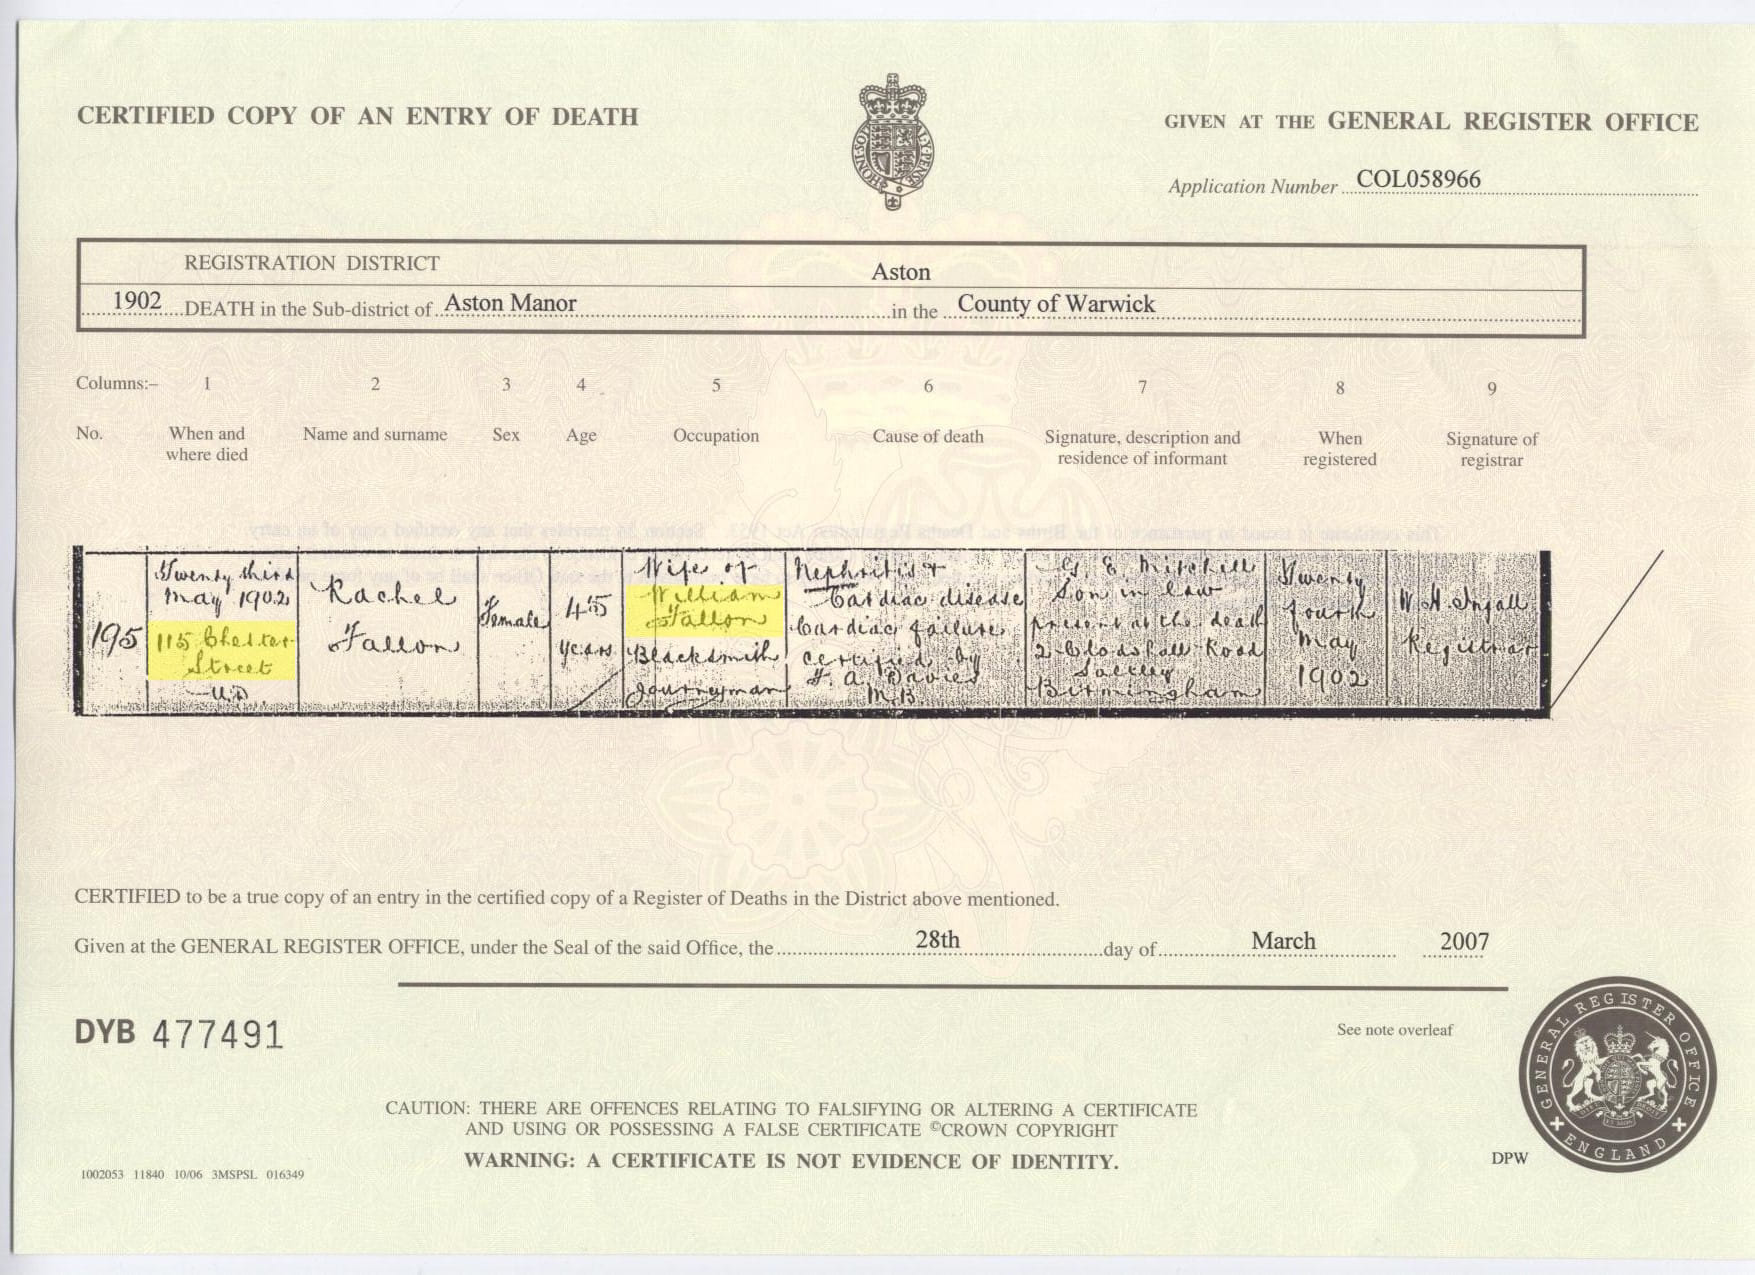 CERTIFIED COPY OF AN ENTRY OF DEATH
GIVEN AT THE GENERAL REGISTER OFFICE
Application Number COL058966
REGISTRATION DISTRICT
Aston
1902 DEATH in the Sub-district of Aston Manor in the County of Warwick
Columns:- 1 2 3 4 5 6 7 8 9
No. When and where died Name and surname Sex Age Occupation Cause of death Signature, description and residence of informant When registered Signature of registrar
195
Twenty third
May 1902
115 Chester
Street
U.D
Rachel
Fallon
Female
45
years
Wife of
William
Fallon
Blacksmith
Journeyman
Nephritis &
Cardiac disease
Cardiac failure
certified by
F. A. Davies
M.B.
G. E. Mitchell
Son in law
present at the death
2 Clodshall Road
Saltley
Birmingham
Twenty
fourth
May
1902
W. H. Ingall
Registrar
CERTIFIED to be a true copy of an entry in the certified copy of a Register of Deaths in the District above mentioned.
Given at the GENERAL REGISTER OFFICE, under the Seal of the said Office, the 28th day of March 2007
DYB 477491
See note overleaf
CAUTION: THERE ARE OFFENCES RELATING TO FALSIFYING OR ALTERING A CERTIFICATE
AND USING OR POSSESSING A FALSE CERTIFICATE ©CROWN COPYRIGHT
WARNING: A CERTIFICATE IS NOT EVIDENCE OF IDENTITY.
1002053 11840 10/06 3MSPSL 016349
DPW
GENERAL REGISTER OFFICE
ENGLAND